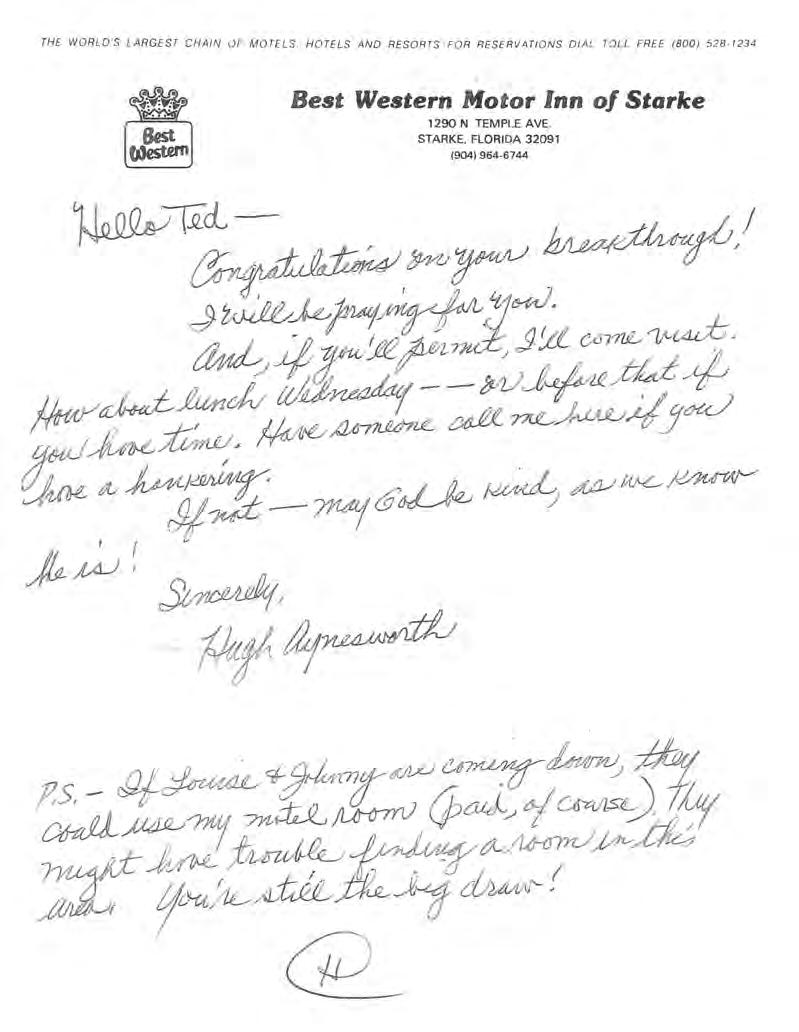 THE WORLD'S LARGEST CHAIN OF MOTELS, HOTELS AND RESORTS FOR RESERVATIONS DIAL TOLL FREE (800) 528-1234
Best Western
Best Western Motor Inn of Starke
1290 N TEMPLE AVE.
STARKE, FLORIDA 32091
(904) 964-6744
Hello Ted —
Congratulations on your breakthrough!
I will be praying for you.
And, if you'll permit, I'll come visit.
How about lunch Wednesday — — or before that if
you have time. Have someone call me here if you
have a hankering.
If not — may God be kind, as we know
He is!
Sincerely,
Hugh Aynesworth
P.S. — If Louise & Johnny are coming down, they
could use my motel room (paid, of course). They
might have trouble finding a room in this
area. You're still the big draw!
H